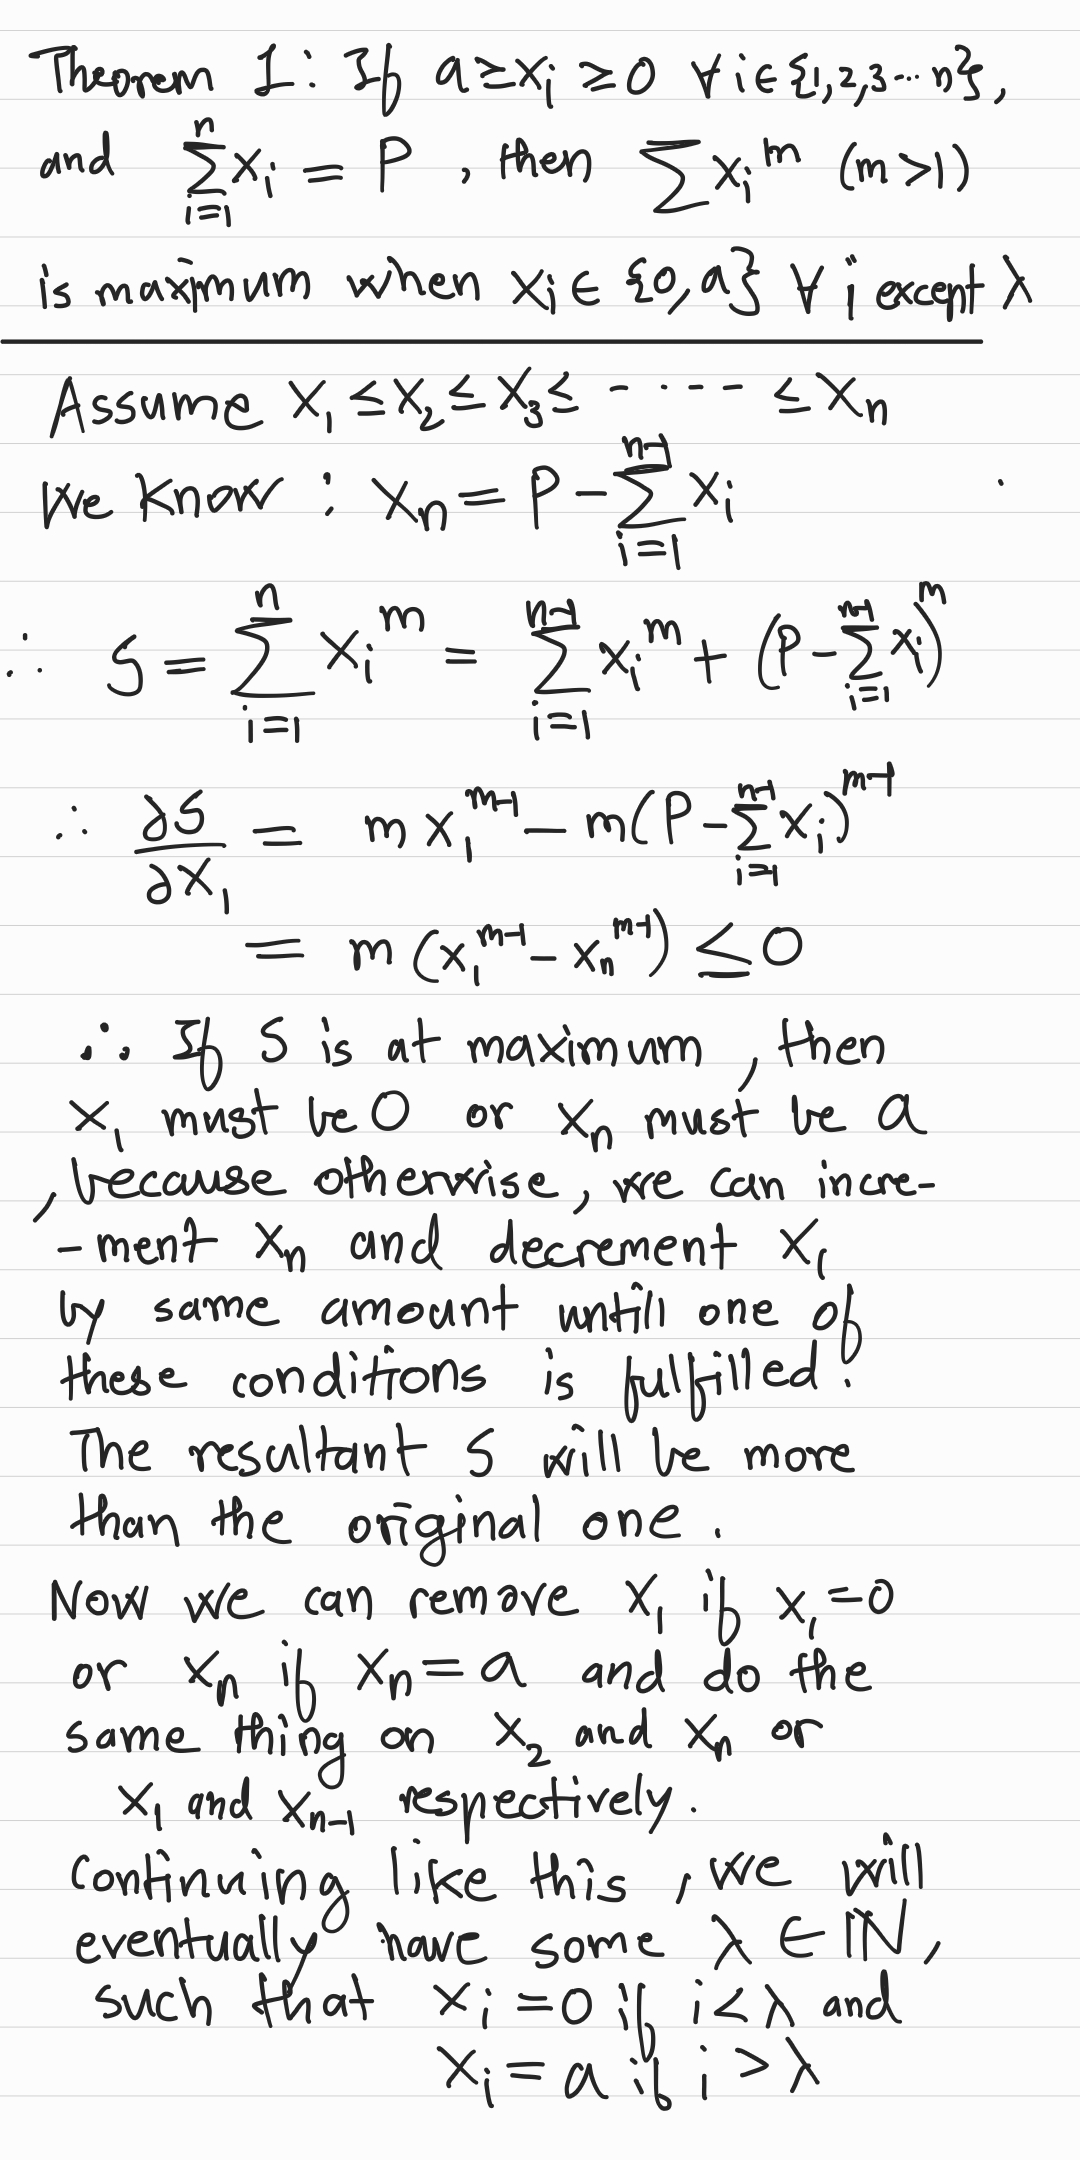 Theorem 1: If a≥xᵢ ≥0 ∀ i∈{1,2,3... n},
and ∑ᵢ₌₁ⁿ xᵢ = P , then ∑xᵢᵐ (m>1)
is maximum when xᵢ ∈ {0,a} ∀ i except λ
Assume x₁ ≤ x₂ ≤ x₃ ≤ - . . . . - ≤ xₙ
We know : xₙ = P - ∑ᵢ₌₁ⁿ⁻¹ xᵢ
∴ S = ∑ᵢ₌₁ⁿ xᵢᵐ = ∑ᵢ₌₁ⁿ⁻¹ xᵢᵐ + (P - ∑ᵢ₌₁ⁿ⁻¹ xᵢ)ᵐ
∴ ∂S/∂x₁ = m x₁ᵐ⁻¹ - m(P - ∑ᵢ₌₁ⁿ⁻¹ xᵢ)ᵐ⁻¹
= m (x₁ᵐ⁻¹ - xₙᵐ⁻¹) ≤ 0
∴ If S is at maximum, then
x₁ must be 0 or xₙ must be a
, because otherwise, we can incre-
-ment xₙ and decrement x₁
by same amount until one of
these conditions is fulfilled.
The resultant S will be more
than the original one.
Now we can remove x₁ if x₁ = 0
or xₙ if xₙ = a and do the
same thing on x₂ and xₙ or
x₁ and xₙ₋₁ respectively.
Continuing like this, we will
eventually have some λ ∈ ℕ,
such that xᵢ = 0 if i < λ and
xᵢ = a if i > λ